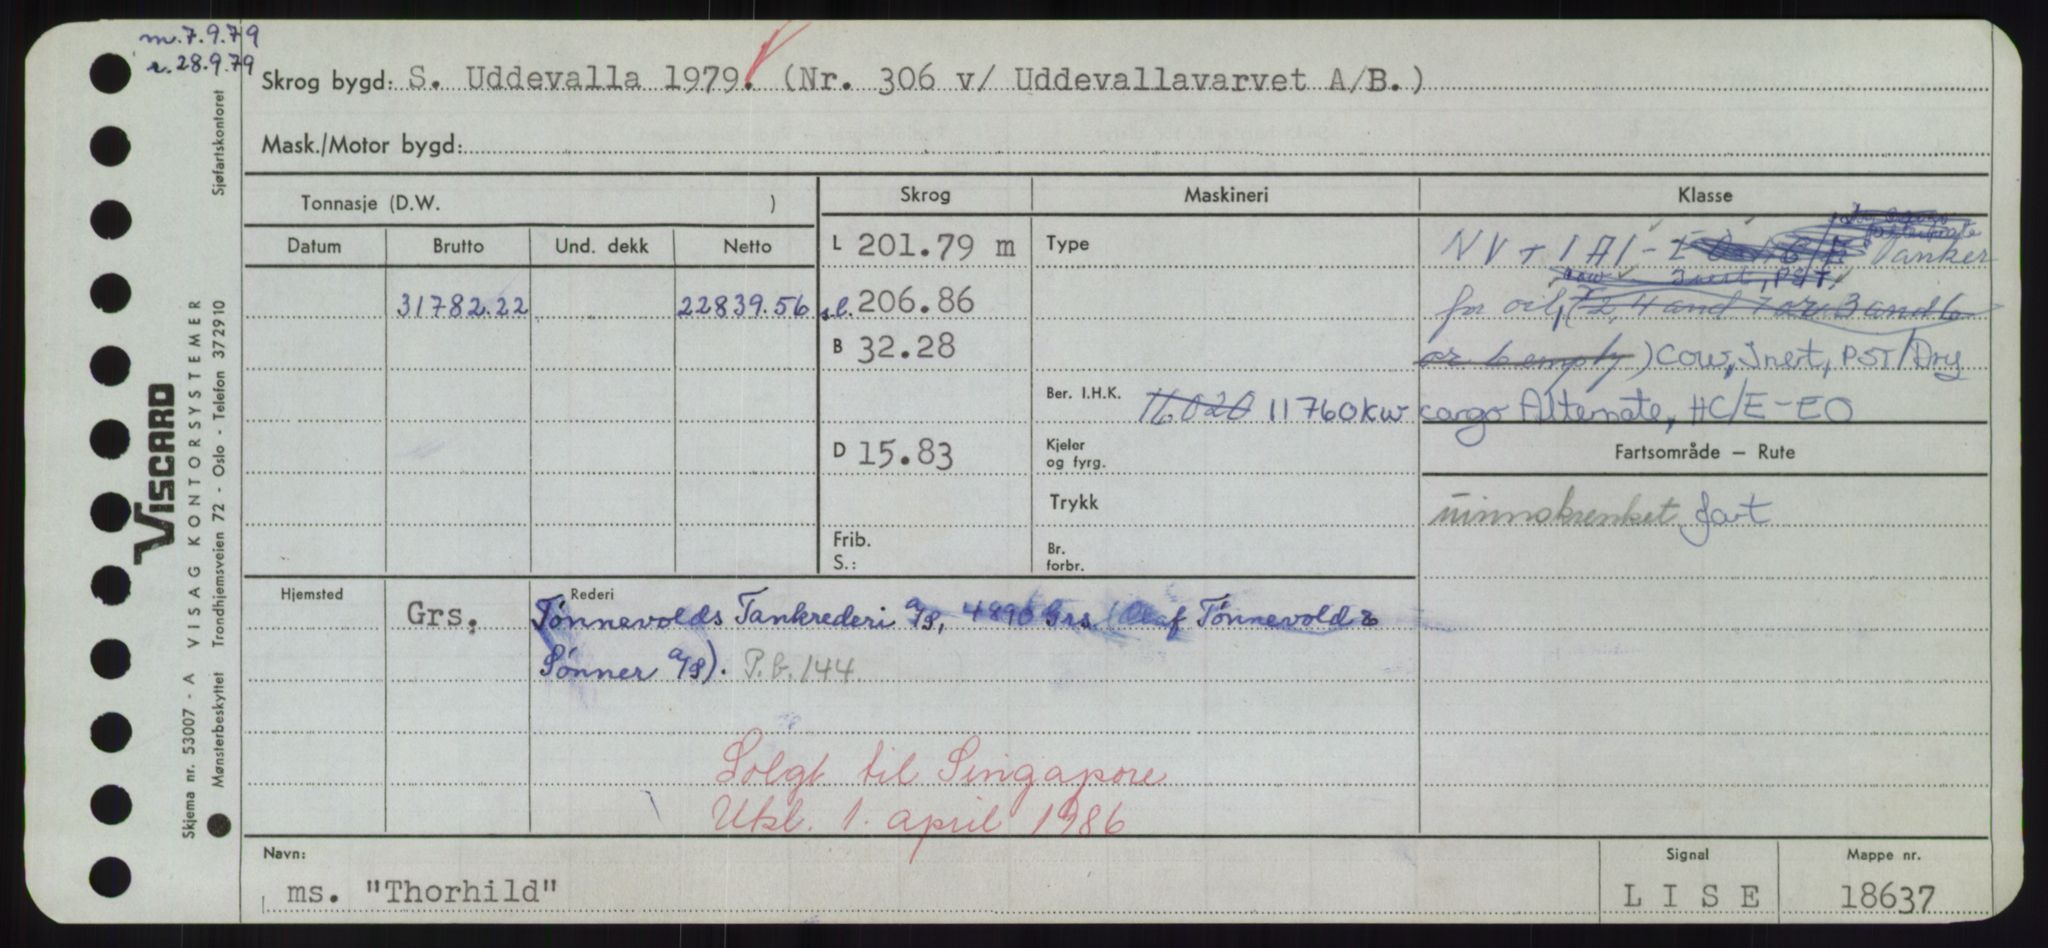 m. 7.9.79
r. 28.9.79
Skrog bygd: S. Uddevalla 1979. (Nr. 306 v/ Uddevallavarvet A/B.)
Mask./Motor bygd:
Tonnasje (D.W. )
Skrog Maskineri Klasse
Datum Brutto Und. dekk Netto
L 201.79 m Type NV + 1A1 - Tanker
31782.22 22839.56 s.l. 206.86
Cow Inert, PST,
for oil, (F2, 4 and 7 or 3 and 6
B 32.28
or 6 empty) COW, Inert, PST/Dry
Ber. I.H.K. 16020 11760KW cargo Alternate, HC/E-EO
D 15.83 Kjeler og fyrg. Fartsområde – Rute
Trykk uinnskrenket fart
Frib.
S.: Br. forbr.
Hjemsted Rederi
Grs. Tønnevolds Tankrederi A/S, 4890 Grs. (Olaf Tønnevold &
Sønner A/S). P.b. 144.
Solgt til Singapore
Utkl. 1. april 1986
Navn: Signal Mappe nr.
ms. "Thorhild" L I S E 18637
VISCARD
Skjema nr. 53007 - A VISAG KONTORSYSTEMER
Mønsterbeskyttet Trondhjemsveien 72 - Oslo - Telefon 372910 Sjøfartskontoret